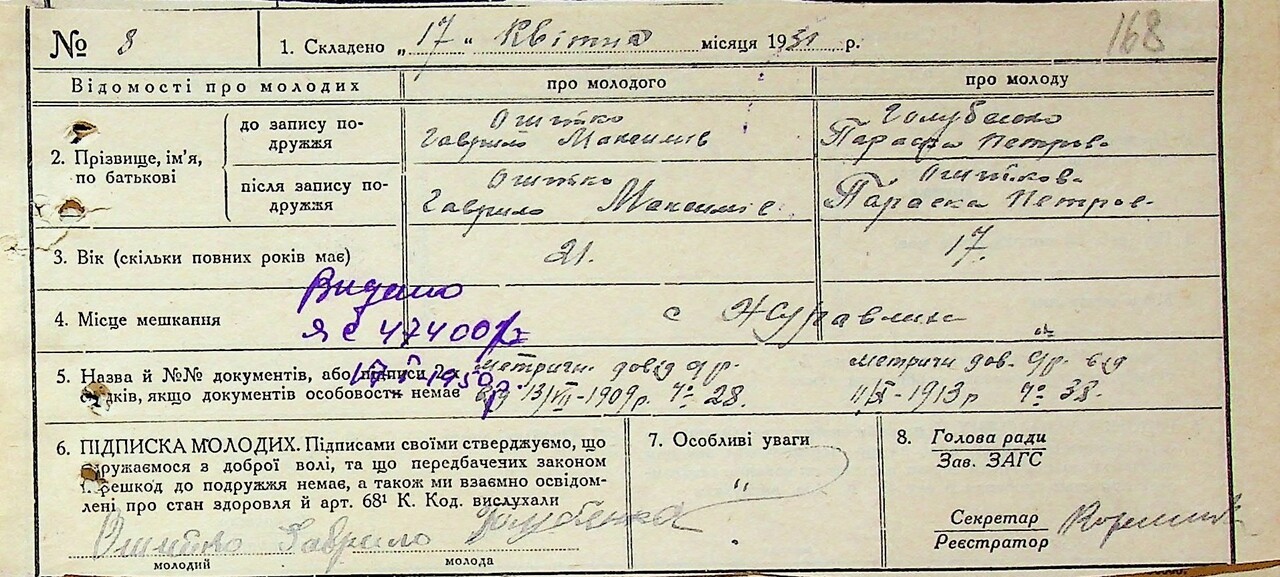 № 8
1. Складено „17“ Квітня місяця 1931 р.
168
Відомості про молодих
про молодого
про молоду
2. Прізвище, ім'я, по батькові
до запису по-
дружжя
Гаврило Максимів
Параска Петрова
після запису по-
дружжя
Гаврило Максимів
Параска Петров.
3. Вік (скільки повних років має)
21.
17.
Видано
ЯБ 47400
17-I-1950р.
4. Місце мешкання
с Журавлинк
5. Назва й №№ документів, або підписи 2-х
свідків, якщо документів особовости немає
метричн. довід др.
13/VII-1909р. № 28.
метричн дов. др. від
11/IX-1913р № 38.
6. ПІДПИСКА МОЛОДИХ. Підписами своїми стверджуємо, що
одружаємося з доброї волі, та що передбачених законом
перешкод до подружжя немає, а також ми взаємно освідом-
лені про стан здоров'я й арт. 68¹ К. Код. вислухали
Гаврило
молодий
молода
7. Особливі уваги
„
8. Голова ради
Зав. ЗАГС
Секретар
Реєстратор